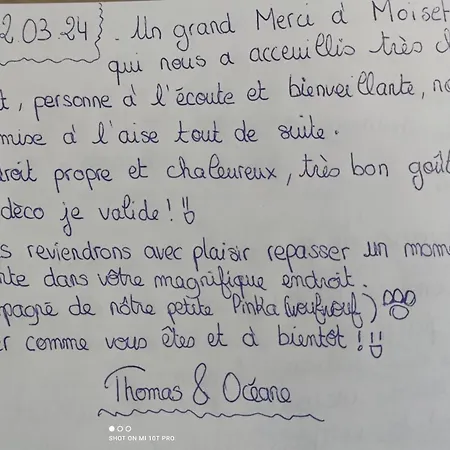 2.03.24}. Un grand Merci à Moiset
qui nous a acceuillis très
t, personne à l'écoute et bienveillante, no
mise à l'aise tout de suite.
droit propre et chaleureux, très bon goût
déco je valide!
s reviendrons avec plaisir repasser un mome
nte dans vôtre magnifique endroit.
mpagné de nôtre petite Pinka (woufwouf)
r comme vous êtes et à bientôt!
Thomas & Océane
SHOT ON MI 10T PRO